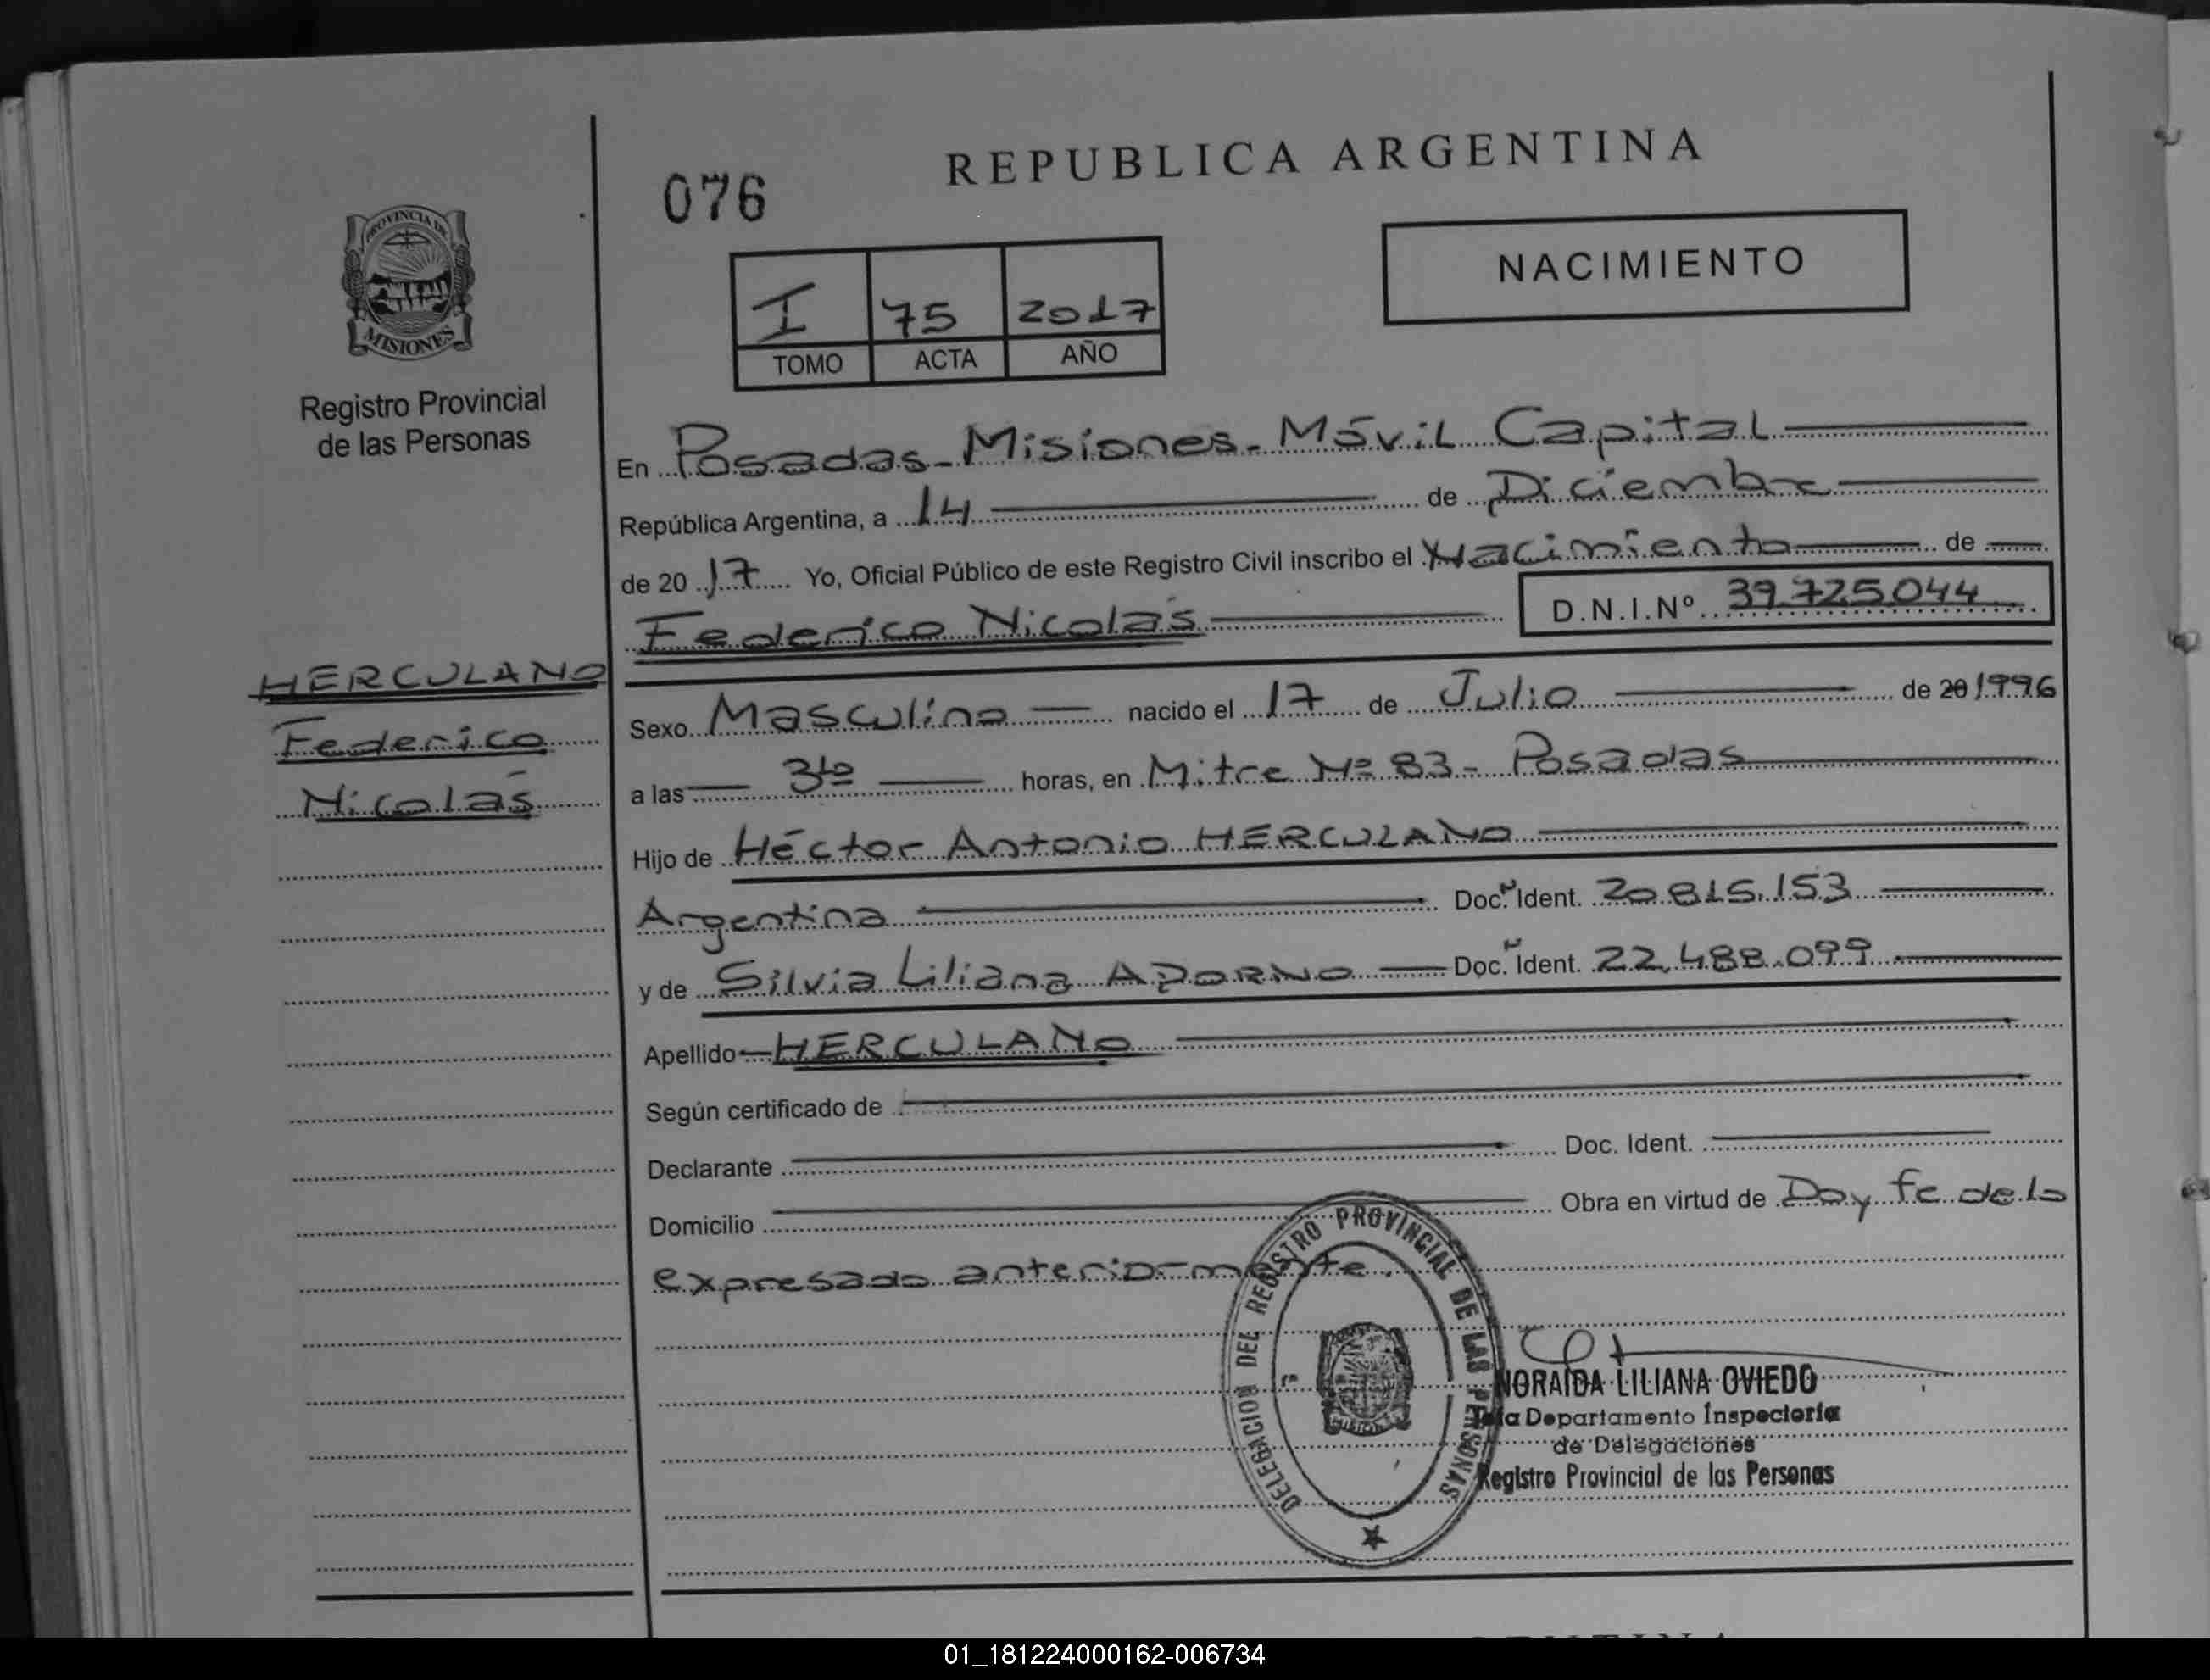 REPUBLICA ARGENTINA
076
NACIMIENTO
I 75 2017
TOMO ACTA AÑO
PROVINCIA DE
MISIONES
Registro Provincial
de las Personas
HERCULANO
Federico
Nicolás
En Posadas - Misiones - Móvil Capital
República Argentina, a 14 de Diciembre
de 2017 Yo, Oficial Público de este Registro Civil inscribo el Nacimiento de
Federico Nicolás D.N.I.Nº 39.725.044
Sexo Masculino nacido el 17 de Julio de 20 1996
a las horas, en Mitre Nº 83 - Posadas
Hijo de Héctor Antonio HERCULANO
Argentina Doc. Ident. 20.815.153
y de Silvia Liliana ADORNO Doc. Ident. 22.488.099
Apellido HERCULANO
Según certificado de
Declarante Doc. Ident.
Domicilio Obra en virtud de Doy fe de lo
expresado anteriormente.
DELEGACION DEL REGISTRO PROVINCIAL DE LAS PERSONAS
NORAIDA LILIANA OVIEDO
Departamento Inspectoría
de Delegaciones
Registro Provincial de las Personas
01_181224000162-006734